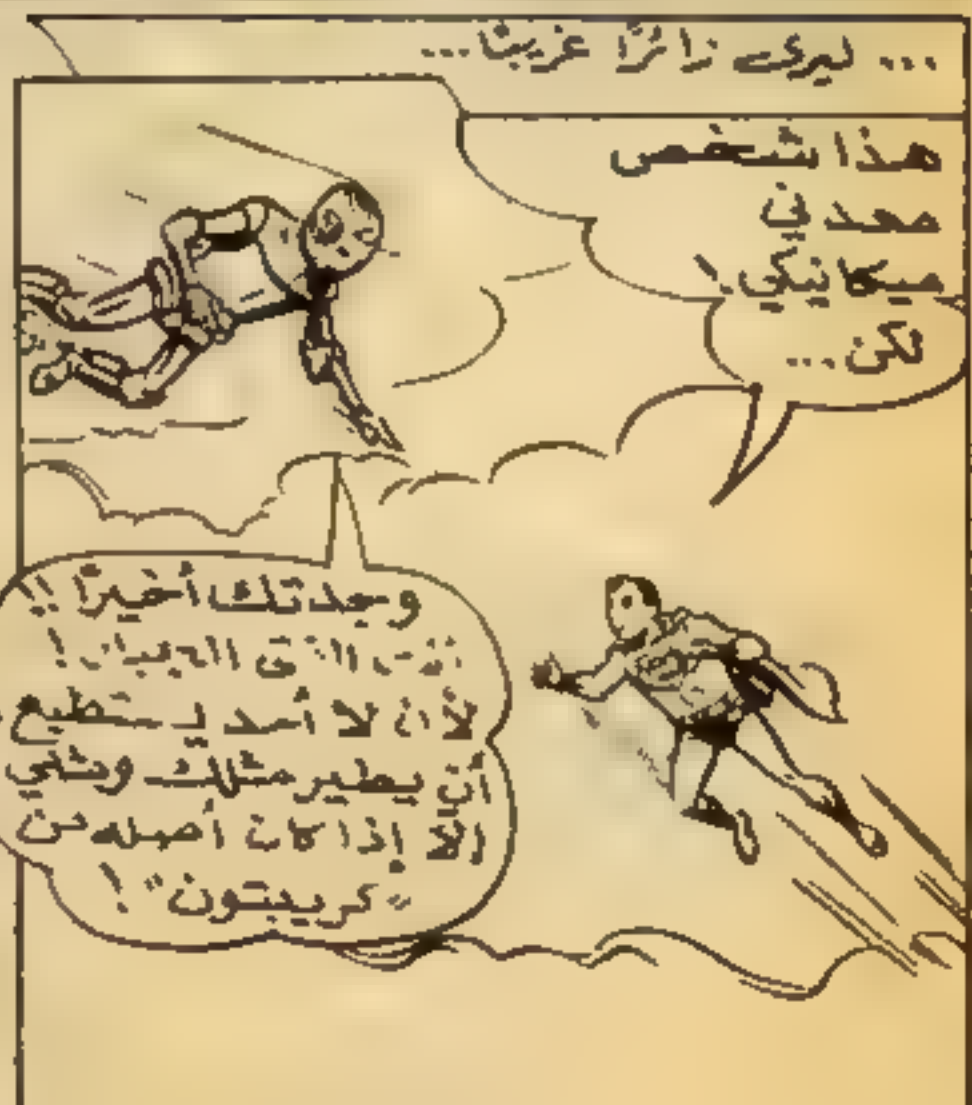 ... ليرى زائرًا غريبًا...
هذا شخص
معدني
ميكانيكي!
لكن...
وجدتك أخيرًا!!
أنت الفتى الجبار!
لأن لا أحد يستطيع
أن يطير مثلك ومثلي
إلا إذا كان أصله من
"كريبتون"!